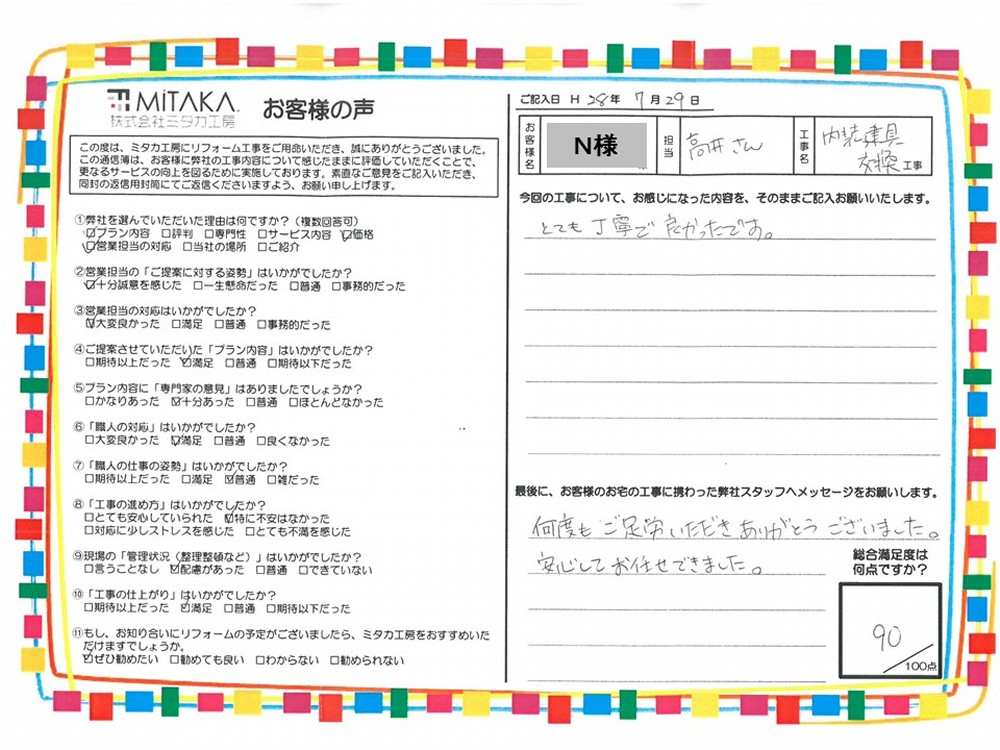 MiTAKA.
株式会社ミタカ工房
お客様の声
この度は、ミタカ工房にリフォーム工事をご用命いただき、誠にありがとうございました。
この通信簿は、お客様に弊社の工事内容について感じたままに評価していただくことで、
更なるサービスの向上を図るために実施しております。素直なご意見をご記入いただき、
同封の返信用封筒にてご返信くださいますよう、お願い申し上げます。
①弊社を選んでいただいた理由は何ですか?(複数回答可)
☑プラン内容 □評判 □専門性 □サービス内容 ☑価格
☑営業担当の対応 □当社の場所 □ご紹介
②営業担当の「ご提案に対する姿勢」はいかがでしたか?
☑十分誠意を感じた □一生懸命だった □普通 □事務的だった
③営業担当の対応はいかがでしたか?
☑大変良かった □満足 □普通 □事務的だった
④ご提案させていただいた「プラン内容」はいかがでしたか?
□期待以上だった ☑満足 □普通 □期待以下だった
⑤プラン内容に「専門家の意見」はありましたでしょうか?
□かなりあった ☑十分あった □普通 □ほとんどなかった
⑥「職人の対応」はいかがでしたか?
□大変良かった ☑満足 □普通 □良くなかった
⑦「職人の仕事の姿勢」はいかがでしたか?
□期待以上だった □満足 ☑普通 □雑だった
⑧「工事の進め方」はいかがでしたか?
□とても安心していられた ☑特に不安はなかった
□対応に少しストレスを感じた □とても不満を感じた
⑨現場の「管理状況(整理整頓など)」はいかがでしたか?
□言うことなし ☑配慮があった □普通 □できていない
⑩「工事の仕上がり」はいかがでしたか?
□期待以上だった ☑満足 □普通 □期待以下だった
⑪もし、お知り合いにリフォームの予定がございましたら、ミタカ工房をおすすめいた
だけますでしょうか。
☑ぜひ勧めたい □勧めても良い □わからない □勧められない
ご記入日 H 28年 7月 29日
お客様名 N様 担当 高井さん 工事名 内装建具
交換 工事
今回の工事について、お感じになった内容を、そのままご記入お願いいたします。
とても丁寧で良かったです。
最後に、お客様のお宅の工事に携わった弊社スタッフへメッセージをお願いします。
何度もご足労いただきありがとうございました。
安心してお任せできました。
総合満足度は
何点ですか?
90
/100点